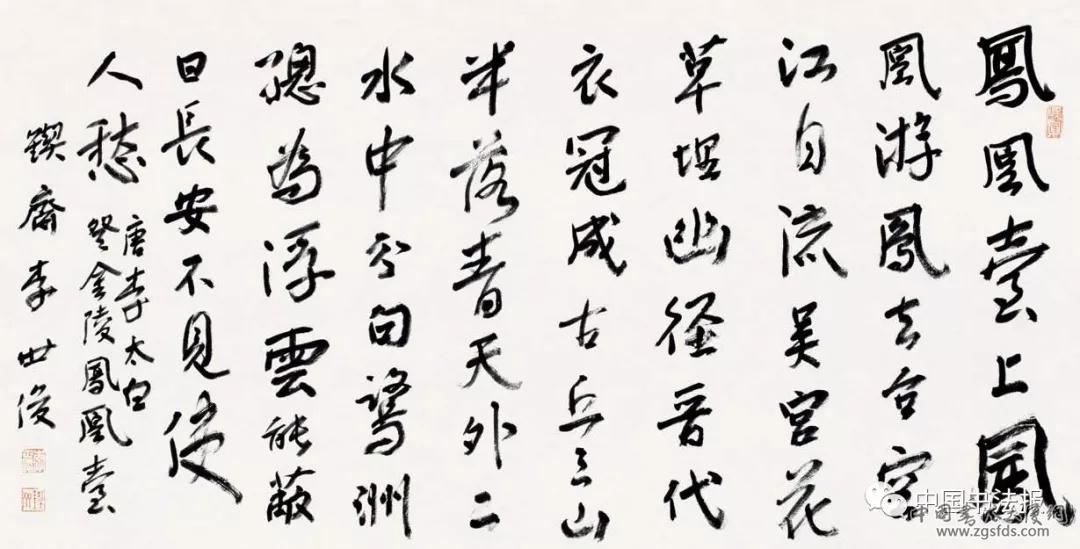 鳳凰臺上鳳
凰游鳳去台空
江自流吴宫花
草埋幽径晋代
衣冠成古丘三山
半落青天外二
水中分白鷺洲
總為浮雲能蔽
日長安不見使
人愁
唐李太白
登金陵鳳凰臺
鍥齋李世俊
中国书法报
www.zgsfds.com